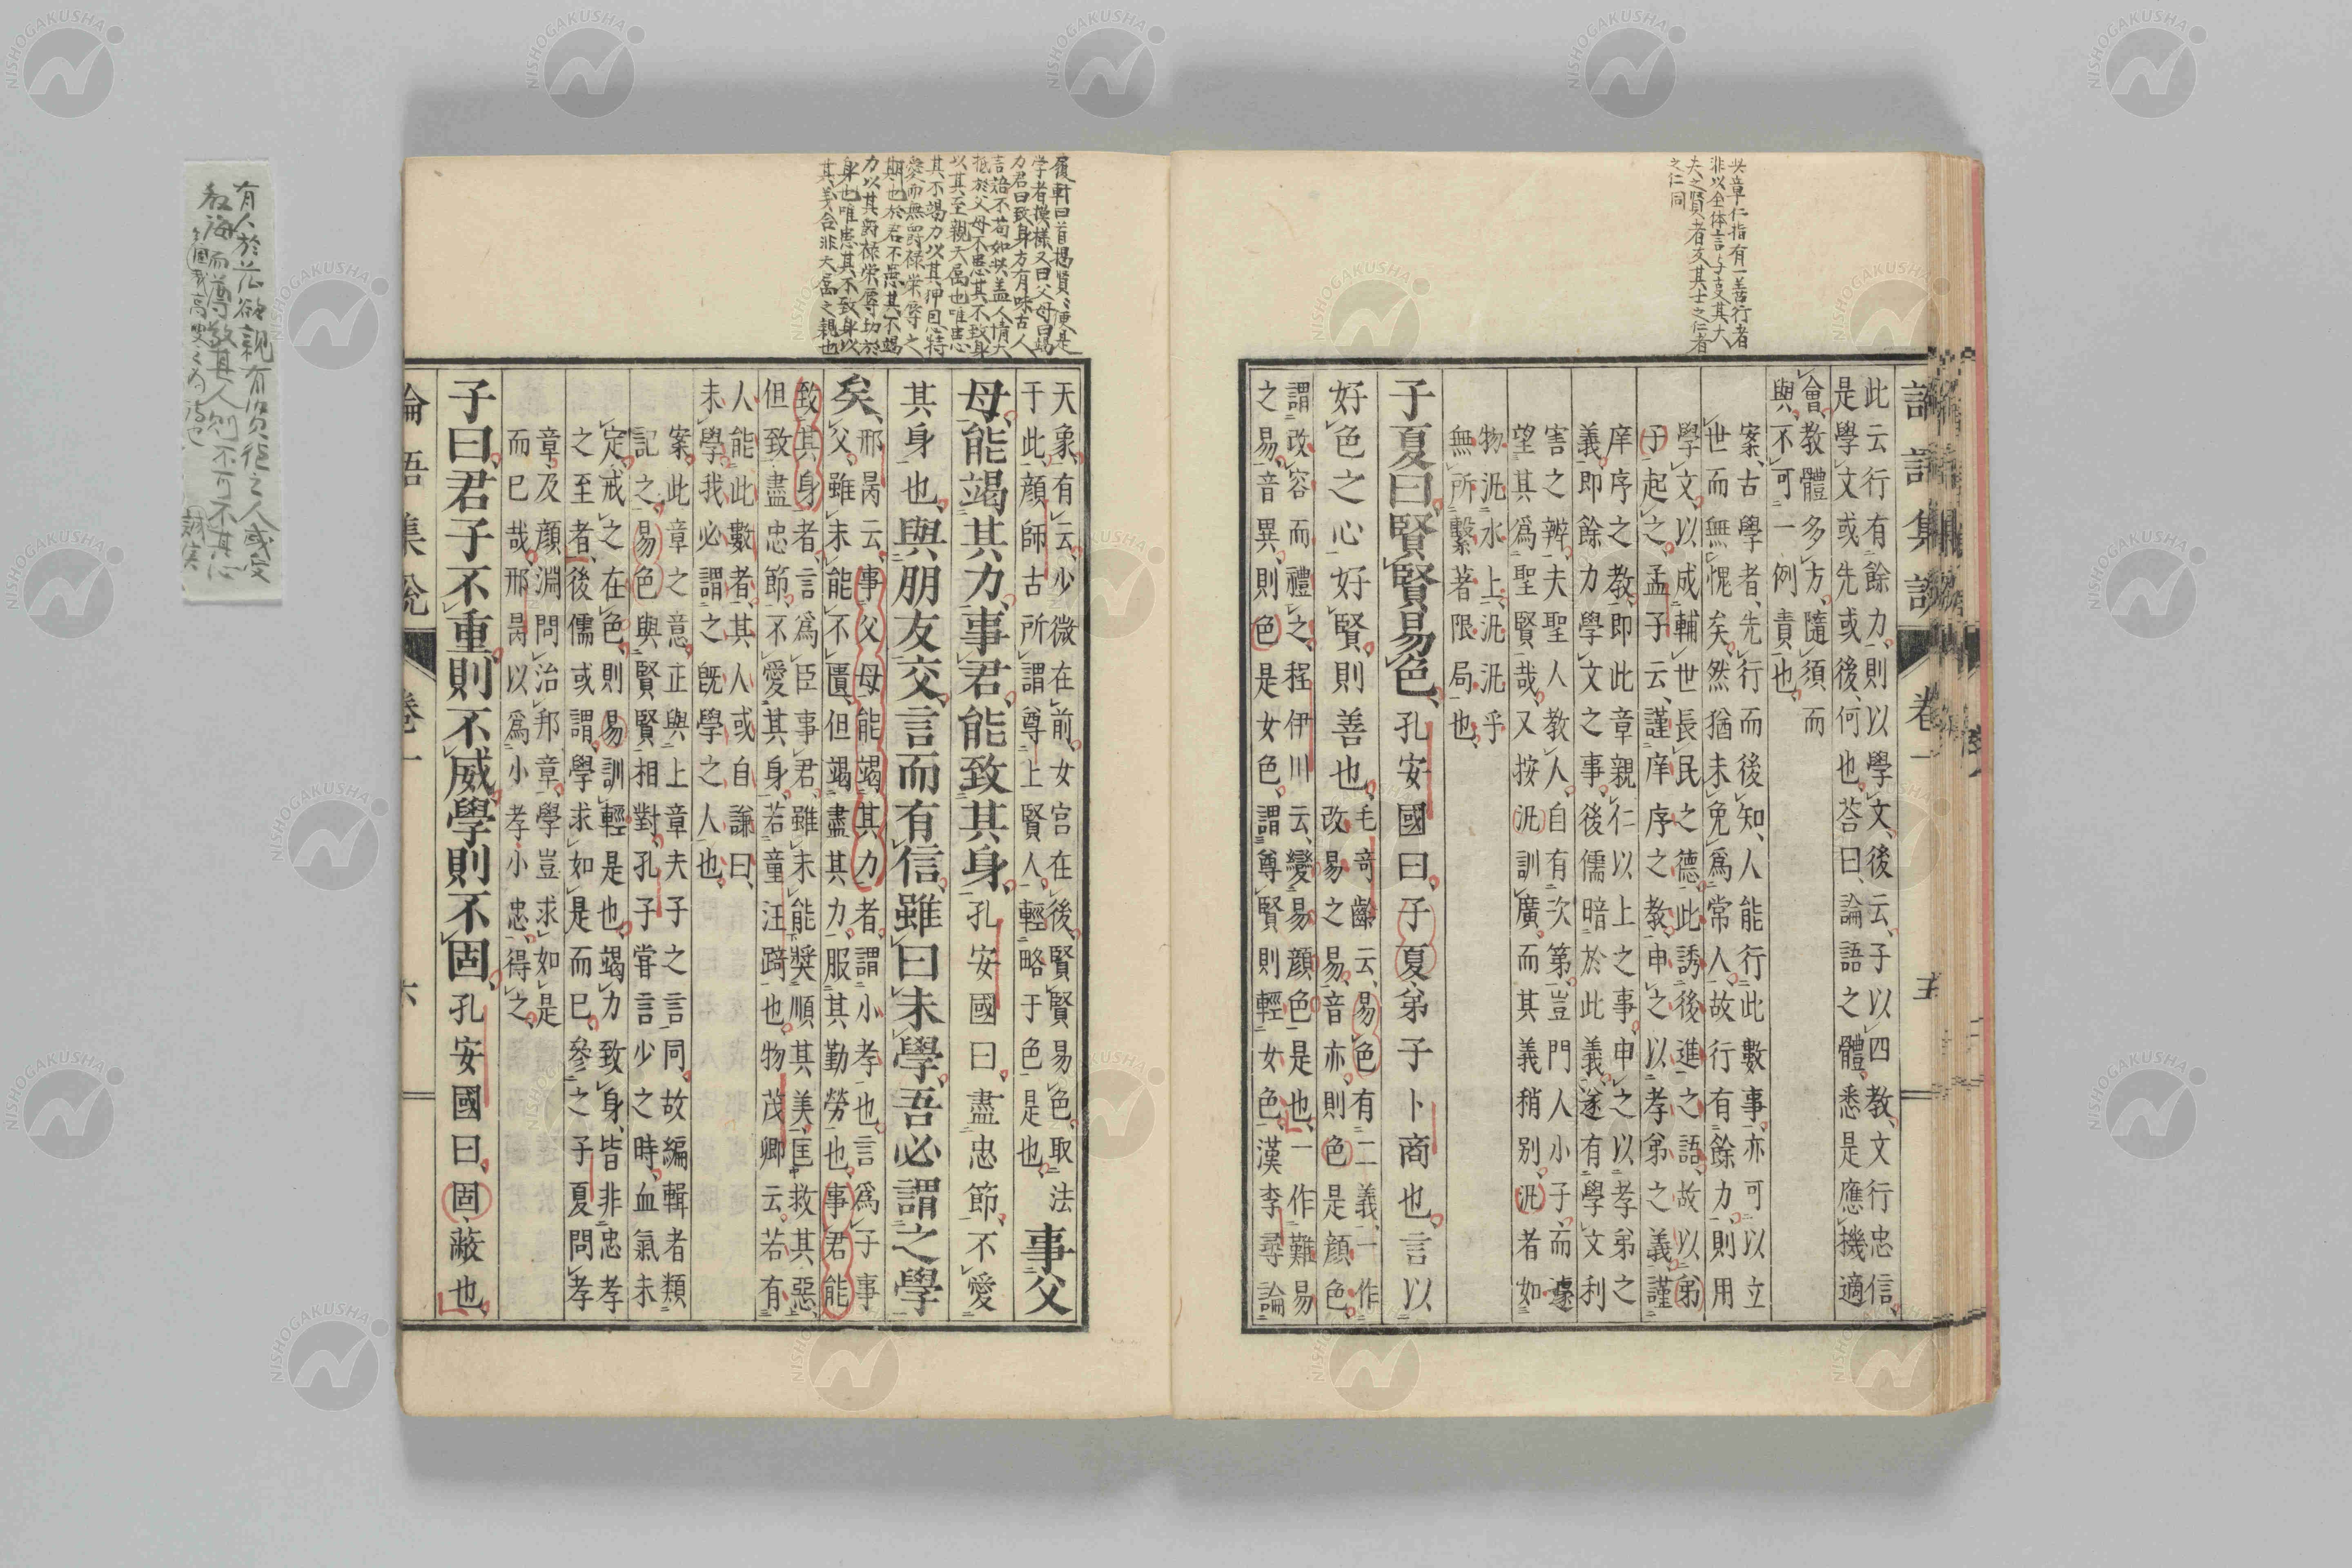 NISHOGAKUSHA
此章仁指有一善行者
非以全体言与友其大
夫之賢者友其士之仁者
之仁同
卷一
此云行有餘力、則以學文、後云、子以四教、文行忠信、
是學文或先或後、何也、荅曰、論語之體、悉是應機適
會、教體多方、隨須而
與、不可一例責也、
案、古學者、先行而後知、人能行此數事、亦可以立
世而無愧矣、然猶未免爲常人、故行有餘力、則用
學文、以成輔世長民之德、此誘後進之語、故以弟
子起之、孟子云、謹庠序之教、申之以孝弟之義、謹
庠序之教、即此章親仁以上之事、申之以孝弟之
義、即餘力學文之事、後儒暗於此義、遂有學文利
害之辨、夫聖人教人、自有次第、豈門人小子、而遽
望其爲聖賢哉、又按汎訓廣、而其義稍別、汎者如
物汎水上、汎汎乎
無所繫著限局也、
子夏曰、賢賢易色、孔安國曰、子夏、弟子卜商也、言以
好色之心好賢、則善也、
毛奇齡云、易色有二義、一作
改易之易、音亦、則色是顔色、
謂改容而禮之、程伊川云、變易顔色是也、一作難易
之易、音異、則色是女色、謂尊賢則輕女色、漢李尋論
履軒曰首揭賢〻便是
学者模樣又曰父母曰竭
力君曰致身方有味古人
言語不苟如此盖人情大
抵於父母不患其不致身
以其至親天属也唯患
其不竭力以其狎恩恃
愛而無爵禄栄辱之
期也於君不患其不竭
力以其爵禄栄辱功於
身也唯患其不致身以
其義合非天属之親也
天象、有云、少微在前、女宮在後、賢賢易色、取法
于此、顔師古所謂尊上賢人、輕略于色是也、
事父
母、能竭其力、事君、能致其身、孔安國曰、盡忠節、不愛
其身也、與朋友交、言而有信、雖曰未學、吾必謂之學
矣、
邢昺云、事父母能竭其力者、謂小孝也、言爲子事
父、雖未能不匱、但竭盡其力、服其勤勞也、事君能
致其身者、言爲臣事君、雖未能奬順其美、匡救其惡、
但致盡忠節、不愛其身、若童汪踦也、物茂卿云、若有
人能此數者、其人或自謙曰、
未學、我必謂之既學之人也、
案、此章之意、正與上章夫子之言同、故編輯者類
記之、易色與賢賢相對、孔子甞言少之時、血氣未
定、戒之在色、則易訓輕是也、竭力致身、皆非忠孝
之至者、後儒或謂、學求如是而已、參之子夏問孝
章及顔淵問治邦章、學豈求如是
而已哉、邢昺以爲小孝小忠、得之、
子曰、君子不重則不威、學則不固、孔安國曰、固、蔽也、
論語集說 卷一 六
有人於此欲親有資徳之人或受
教誨而尊敬其人則不可不其心
誠信